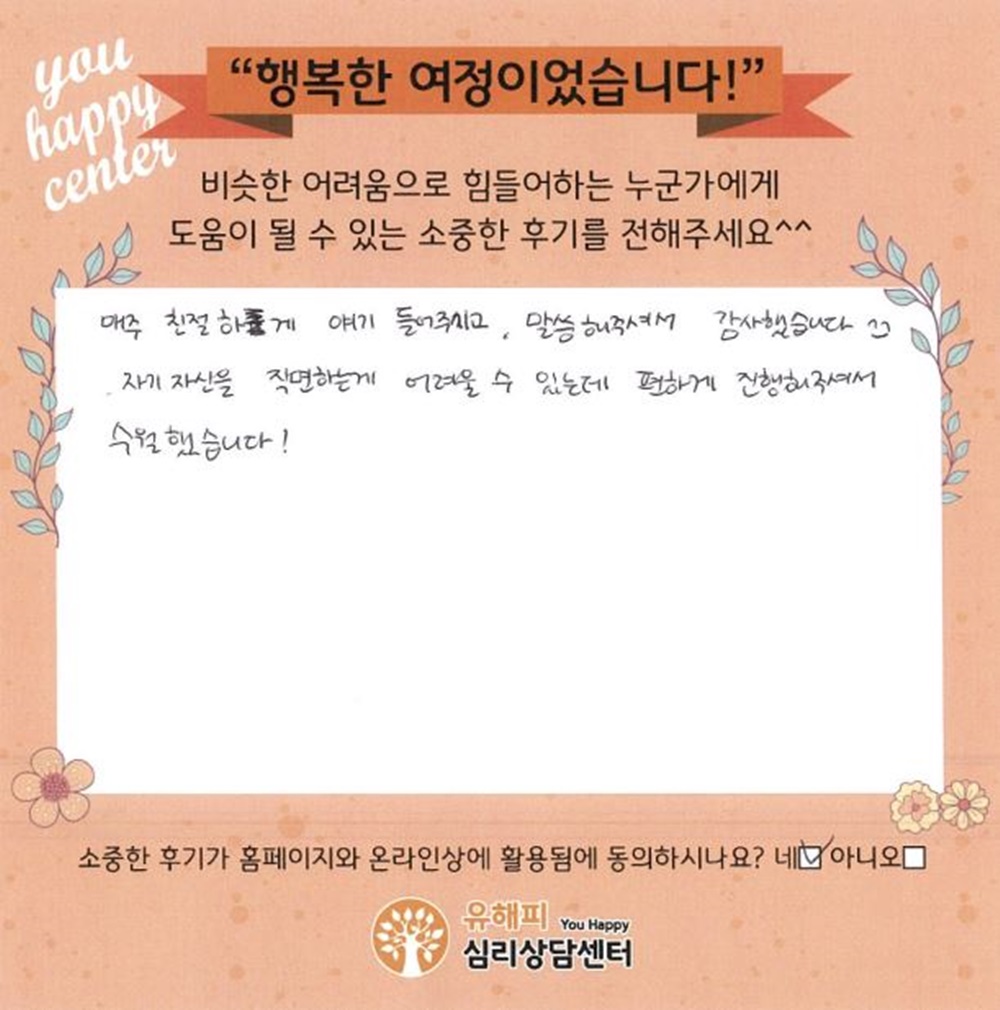 you
happy
center
“행복한 여정이었습니다!”
비슷한 어려움으로 힘들어하는 누군가에게
도움이 될 수 있는 소중한 후기를 전해주세요^^
매주 친절하게 얘기 들어주시고, 말씀해주셔서 감사했습니다 :)
자기 자신을 직면하는게 어려울 수 있는데 편하게 진행해주셔서
수월했습니다!
소중한 후기가 홈페이지와 온라인상에 활용됨에 동의하시나요? 네☑ 아니오☐
유해피 You Happy
심리상담센터